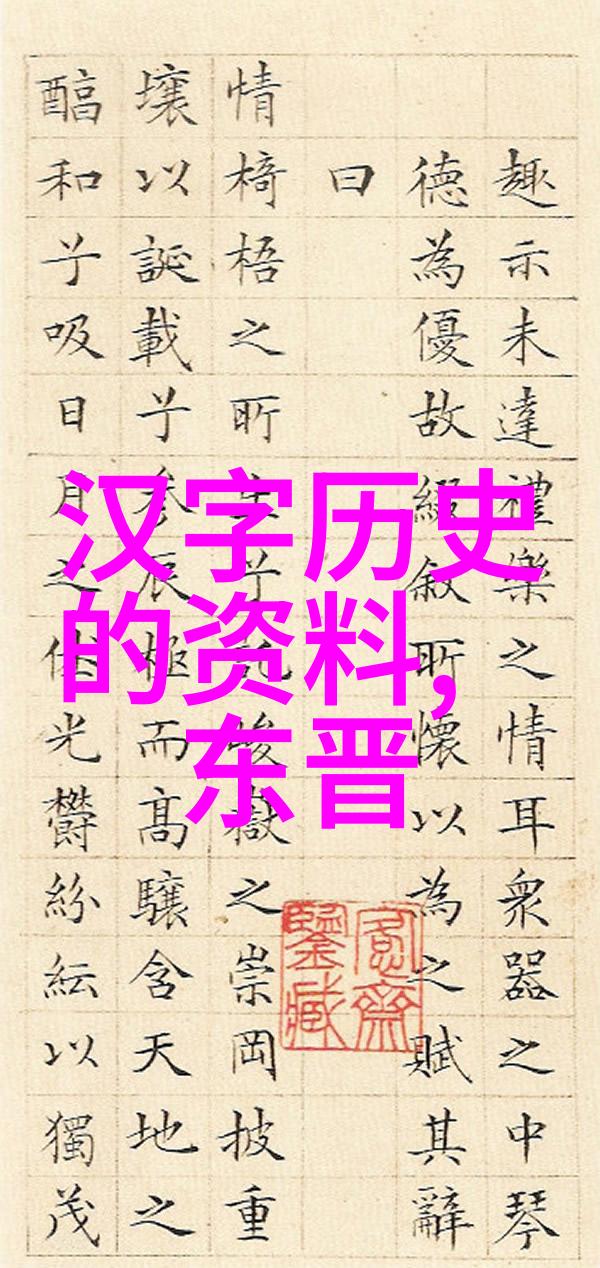 汉字历史
的资料,
东晋
趣示未達禮樂之情耳衆器之中琴
德為優故綴叙所懷以為之賦其辭
曰
情椅梧之所生兮託峻嶽之崇岡披重
壤以誕載兮參辰極而高驤含天地之
醕和兮吸日月之休光鬱紛紜以獨茂
愙齋
鑒藏